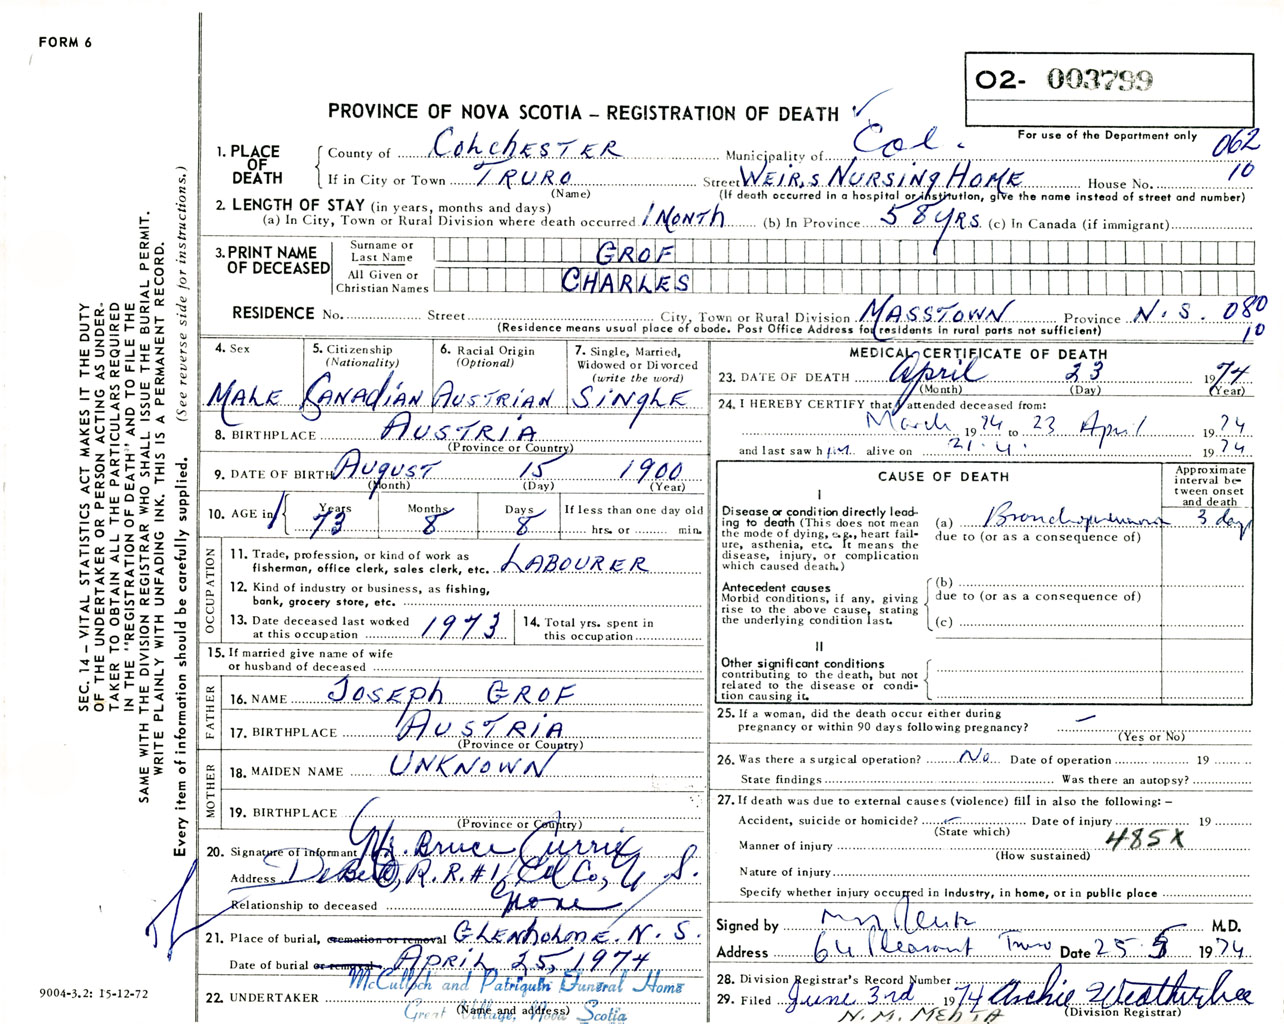 FORM 6
O2- 003799
For use of the Department only
PROVINCE OF NOVA SCOTIA – REGISTRATION OF DEATH
062
10
1. PLACE OF DEATH
County of COLCHESTER Municipality of Col.
If in City or Town TRURO Street WEIR,S NURSING HOME House No.
(Name) (If death occurred in a hospital or institution, give the name instead of street and number)
2. LENGTH OF STAY (in years, months and days)
(a) In City, Town or Rural Division where death occurred 1 MONTH (b) In Province 58 YRS (c) In Canada (if immigrant)
3. PRINT NAME OF DECEASED
Surname or Last Name GROF
All Given or Christian Names CHARLES
RESIDENCE No. Street City, Town or Rural Division MASSTOWN Province N.S. 080
10
(Residence means usual place of abode. Post Office Address for residents in rural parts not sufficient)
4. Sex
MALE
5. Citizenship
(Nationality)
CANADIAN
6. Racial Origin
(Optional)
AUSTRIAN
7. Single, Married,
Widowed or Divorced
(write the word)
SINGLE
8. BIRTHPLACE AUSTRIA
(Province or Country)
9. DATE OF BIRTH AUGUST 15 1900
(Month) (Day) (Year)
10. AGE in Years Months Days If less than one day old
73 8 8 hrs. or min.
OCCUPATION
11. Trade, profession, or kind of work as
fisherman, office clerk, sales clerk, etc. LABOURER
12. Kind of industry or business, as fishing,
bank, grocery store, etc.
13. Date deceased last worked
at this occupation 1973
14. Total yrs. spent in
this occupation
15. If married give name of wife
or husband of deceased
FATHER
16. NAME JOSEPH GROF
17. BIRTHPLACE AUSTRIA
(Province or Country)
MOTHER
18. MAIDEN NAME UNKNOWN
19. BIRTHPLACE
(Province or Country)
20. Signature of informant Bruce Currie
Address DeBert, R.R.#1, Col Co, N.S.
Relationship to deceased none
21. Place of burial, cremation or removal GLENHOLME. N.S.
Date of burial or removal APRIL 25, 1974
22. UNDERTAKER McCulloch and Patriquin Funeral Home
(Name and address)
Great Village, Nova Scotia
MEDICAL CERTIFICATE OF DEATH
23. DATE OF DEATH April 23 1974
(Month) (Day) (Year)
24. I HEREBY CERTIFY that I attended deceased from:
March 1974 to 23 April 1974
and last saw him alive on 21.4. 1974
CAUSE OF DEATH
Approximate
interval be-
tween onset
and death
I
Disease or condition directly lead-
ing to death (This does not mean
the mode of dying, e.g., heart fail-
ure, asthenia, etc. It means the
disease, injury, or complication
which caused death.)
(a) Bronchopneumonia 3 days
due to (or as a consequence of)
Antecedent causes
Morbid conditions, if any, giving
rise to the above cause, stating
the underlying condition last.
(b)
due to (or as a consequence of)
(c)
II
Other significant conditions
contributing to the death, but not
related to the disease or condi-
tion causing it.
25. If a woman, did the death occur either during
pregnancy or within 90 days following pregnancy? –
(Yes or No)
26. Was there a surgical operation? No Date of operation 19
State findings Was there an autopsy?
27. If death was due to external causes (violence) fill in also the following: –
Accident, suicide or homicide? – Date of injury 19
(State which)
485X
Manner of injury
(How sustained)
Nature of injury
Specify whether injury occurred in industry, in home, or in public place
Signed by M.D.
Address 64 Pleasant Truro Date 25 5 1974
28. Division Registrar's Record Number
29. Filed June 3rd 1974 Archie Weatherbee
(Division Registrar)
N. M. MEHTA
SEC. 14 – VITAL STATISTICS ACT MAKES IT THE DUTY
OF THE UNDERTAKER OR PERSON ACTING AS UNDER-
TAKER TO OBTAIN ALL THE PARTICULARS REQUIRED
IN THE "REGISTRATION OF DEATH" AND TO FILE THE
SAME WITH THE DIVISION REGISTRAR WHO SHALL ISSUE THE BURIAL PERMIT.
WRITE PLAINLY WITH UNFADING INK. THIS IS A PERMANENT RECORD.
Every item of information should be carefully supplied. (See reverse side for instructions.)
9004-3.2: 15-12-72